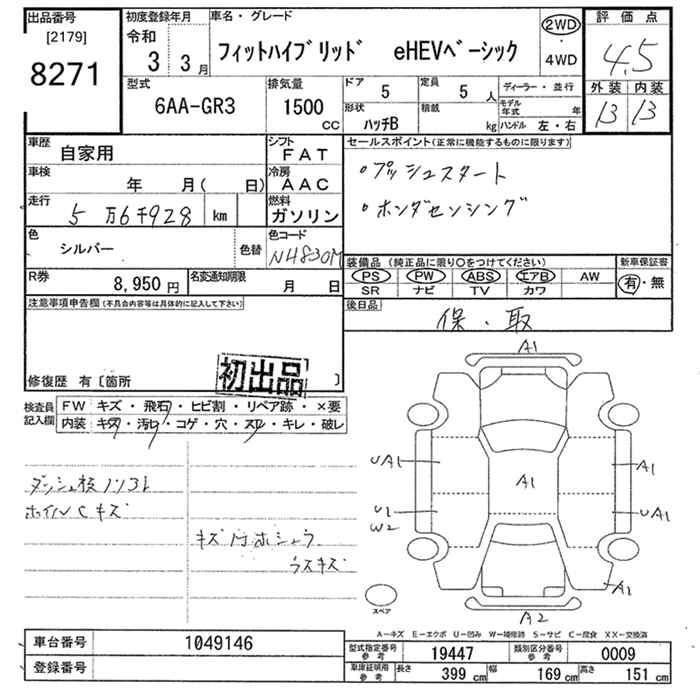 出品番号
[2179]
8271
初度登録年月
令和
3 3月
車名・グレード
フィットハイブリッド eHEVベーシック
2WD
・
4WD
評価点
4.5
外装 内装
13 13
型式
6AA-GR3
排気量
1500
cc
ドア
5
定員
5 人
形状
ハッチB
積載
kg
ディーラー・並行
モデル年式 年
ハンドル 左・右
車歴
自家用
シフト
FAT
車検
年 月( 日)
冷房
AAC
走行
5万6千928 km
燃料
ガソリン
色
シルバー
色替
色コード
NH830M
R券
8,950円
名変通知期限
月 日
セールスポイント(正常に機能するものに限ります)
・プッシュスタート
・ホンダセンシング
装備品 (純正品に限り〇をつけてください)
新車保証書
PS PW ABS エアB AW
有・無
SR ナビ TV カワ
後日品
保・取
注意事項申告欄(不具合内容等は具体的に記入して下さい)
修復歴 有〔箇所 〕
初出品
検査員記入欄
FW キズ・飛石・ヒビ割・リペア跡・×要
内装 キズ・汚れ・コゲ・穴・スレ・キレ・破レ
ホイルCキズ
ウスキズ
A1
UA1
A1
A1
U1
W2
UA1
A2
A2
スペア
A-キズ E-エクボ U-凹み W-補修跡 S-サビ C-腐食 XX-交換済
車台番号
1049146
登録番号
型式指定番号 参考
19447
類別区分番号 参考
0009
車庫証明用 参考
長さ 399 cm
幅 169 cm
高さ 151 cm